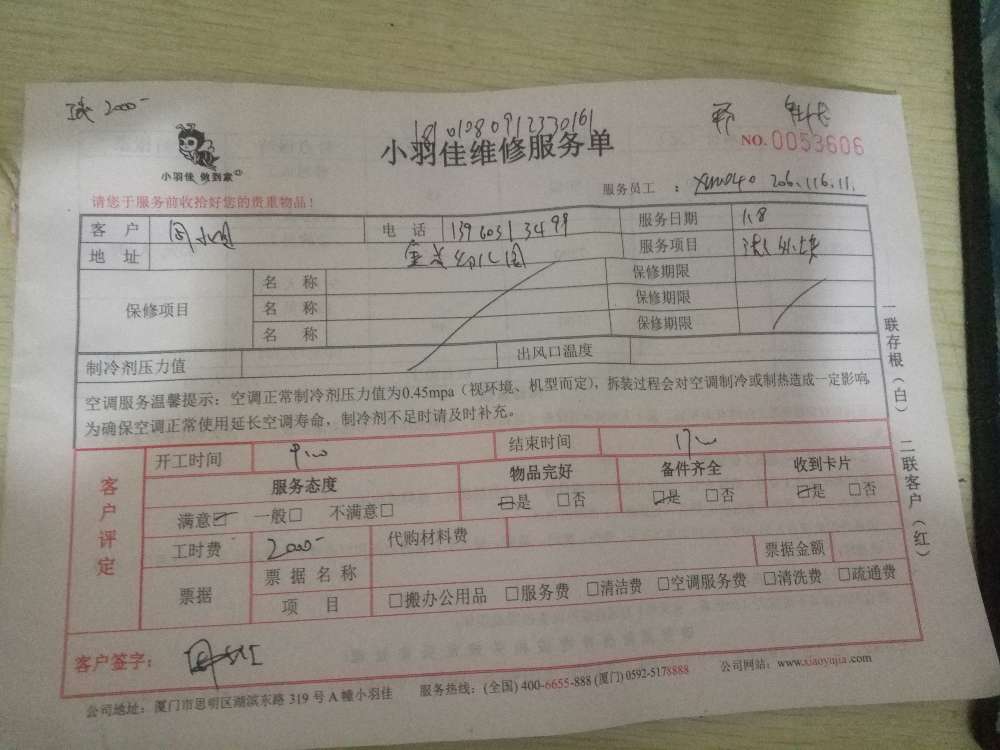 2000-
18101080912330161
小羽佳 做到家
小羽佳维修服务单
NO. 0053606
请您于服务前收拾好您的贵重物品!
服务员工 : 206.116.11.
客 户 电 话 服务日期 1.8
地 址 服务项目
保修项目
名 称 保修期限
名 称 保修期限
名 称 保修期限
制冷剂压力值 出风口温度
空调服务温馨提示:空调正常制冷剂压力值为0.45mpa(视环境、机型而定),拆装过程会对空调制冷或制热造成一定影响,
为确保空调正常使用延长空调寿命,制冷剂不足时请及时补充。
一联存根(白) 二联客户(红)
客户评定
开工时间 结束时间
服务态度 物品完好 备件齐全 收到卡片
满意☑ 一般□ 不满意□ ☑是 □否 ☑是 □否 ☑是 □否
工时费 2000- 代购材料费
票据 票 据 名 称 票据金额
项 目 □搬办公用品 □服务费 □清洁费 □空调服务费 □清洗费 □疏通费
客户签字:
公司地址:厦门市思明区湖滨东路 319 号 A 幢小羽佳 服务热线:(全国) 400-6655-888 (厦门) 0592-5178888 公司网站:www.xiaoyujia.com